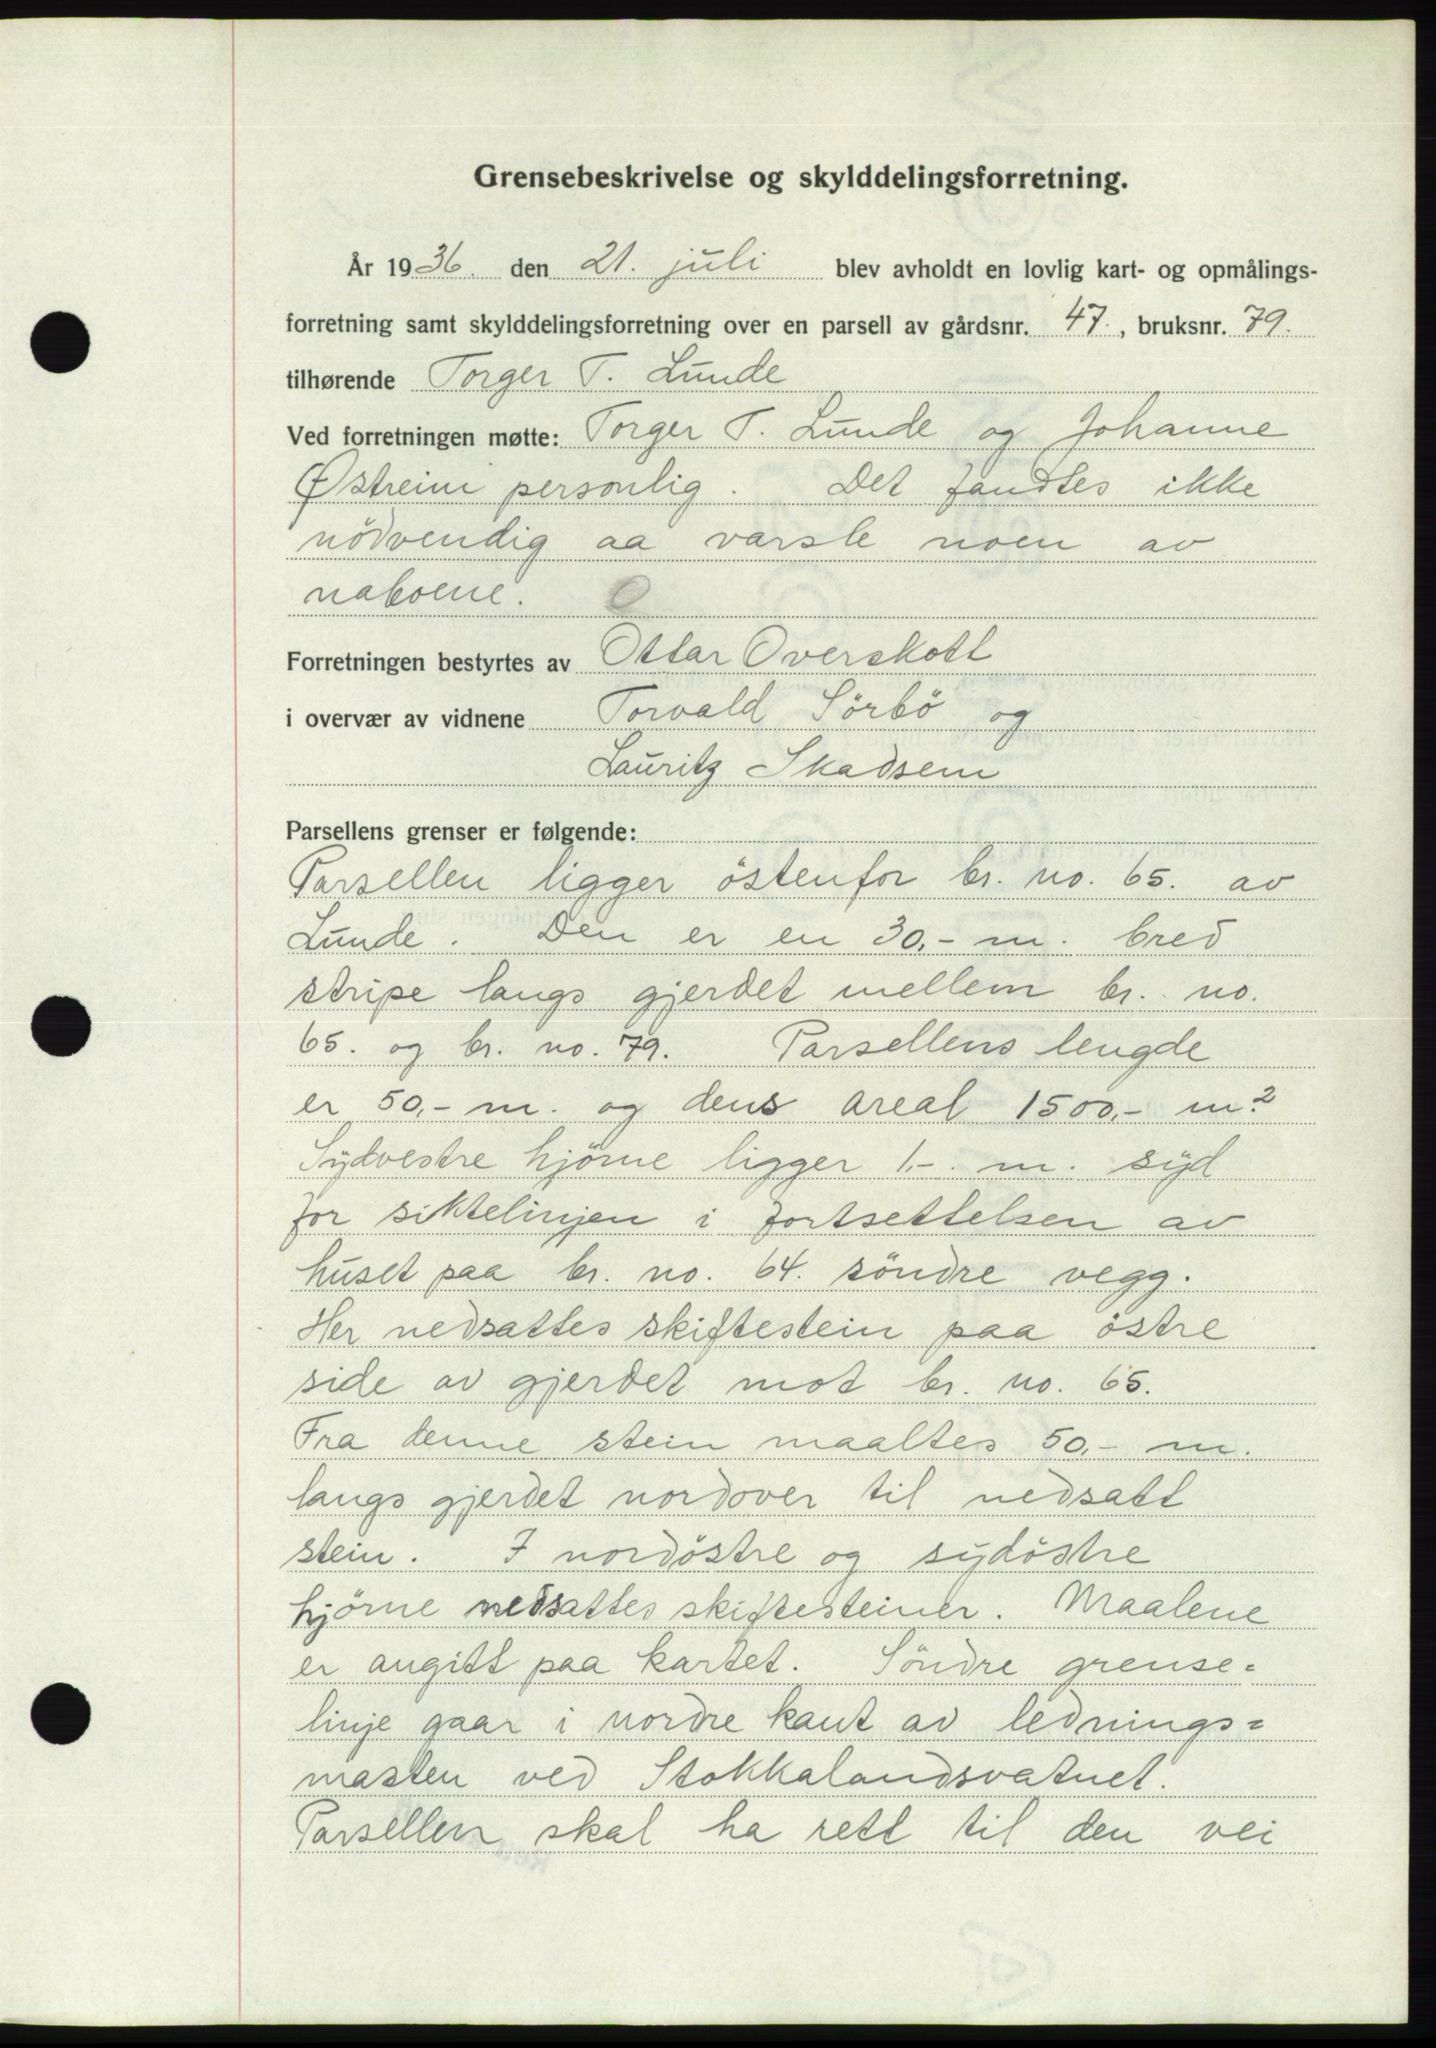 Grensebeskrivelse og skylddelingsforretning.
År 1936. den 21. juli blev avholdt en lovlig kart- og opmålings-
forretning samt skylddelingsforretning over en parsell av gårdsnr. 47., bruksnr. 79.
tilhørende Torger T. Lunde
Ved forretningen møtte: Torger T. Lunde og Johanne
Østreim personlig. Det fandtes ikke
nödvendig aa varsle noen av
naboene.
Forretningen bestyrtes av Ottar Overskott
i overvær av vidnene Torvald Sörbö og
Lauritz Skadsem
Parsellens grenser er følgende:
Parsellen ligger östenfor br. no. 65. av
Lunde. Den er en 30,- m. bred
stripe langs gjerdet mellem br. no.
65. og br. no. 79. Parsellens lengde
er 50,- m. og dens areal 1500,- m.²
Sydvestre hjörne ligger 1.-. m. syd
for siktelinjen i fortsettelsen av
huset paa br. no. 64. söndre vegg.
Her nedsattes skiftestein paa östre
side av gjerdet mot br. no. 65.
Fra denne stein maaltes 50,- m.
langs gjerdet nordover til nedsatt
stein. I nordöstre og sydöstre
hjörne nedsattes skiftesteiner. Maalene
er angitt paa kartet. Söndre grense=
linje gaar i nordre kant av lednings=
masten ved Stokkalandsvatnet.
Parsellen skal ha rett til den vei